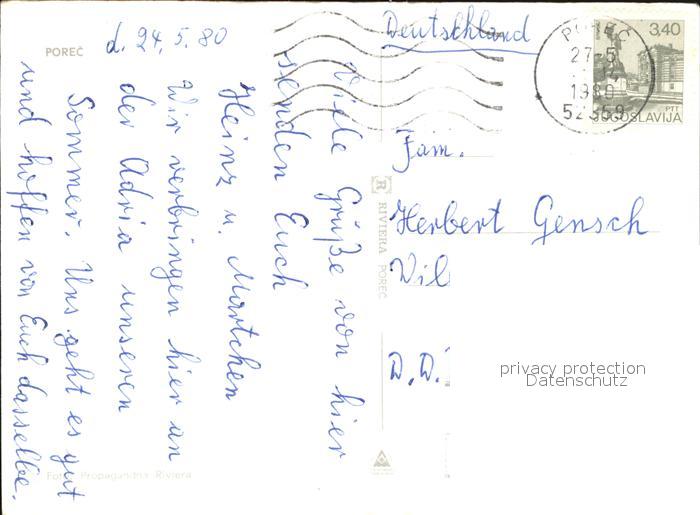 POREČ
d. 24. 5. 80
Viele Grüße von hier
senden Euch
Heinz u. Martchen
Wir verbringen hier an
der Adria unseren
Sommer. Uns geht es gut
und hoffen von Euch dasselbe.
Foto: Propagandna Riviera
RIVIERA POREČ
Deutschland
3,40
PTT
JUGOSLAVIJA
27-5
1980
52359
Fam.
Herbert Gensch
Vil
D.D.
privacy protection
Datenschutz